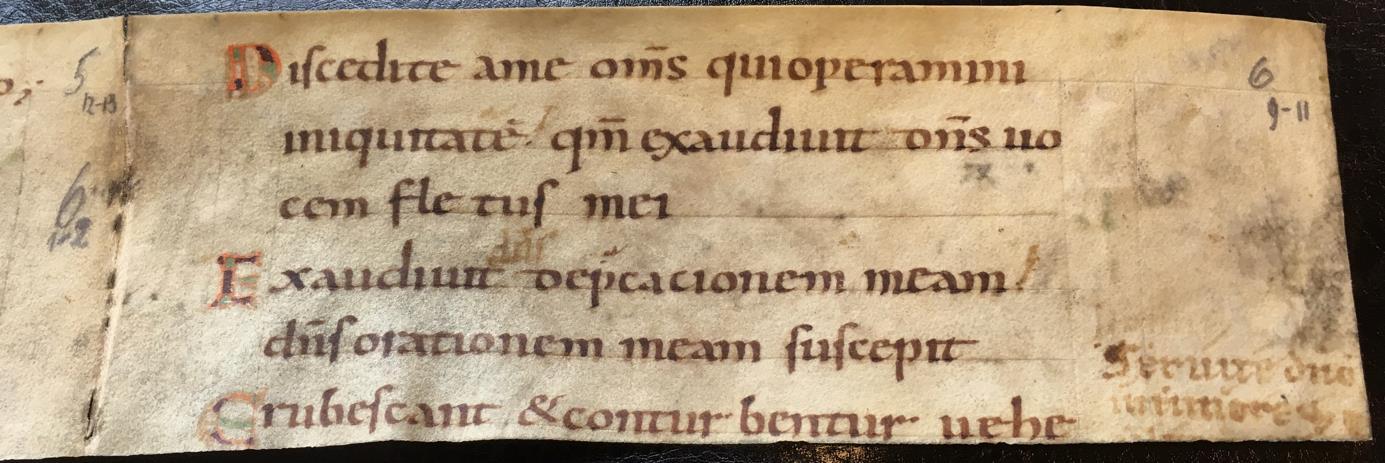 5
12-13
6
1-2
Discedite ame om̄s quioperamini
iniquitatē qm̄ exaudiuit dn̄s uo
cem fle tus mei
dn̄s
Exaudiuit dep̄cacionem meam
dn̄s orationem meam suscepit
Erubescant &contur bentur uehe
6
9-11
Seruite dn̄o